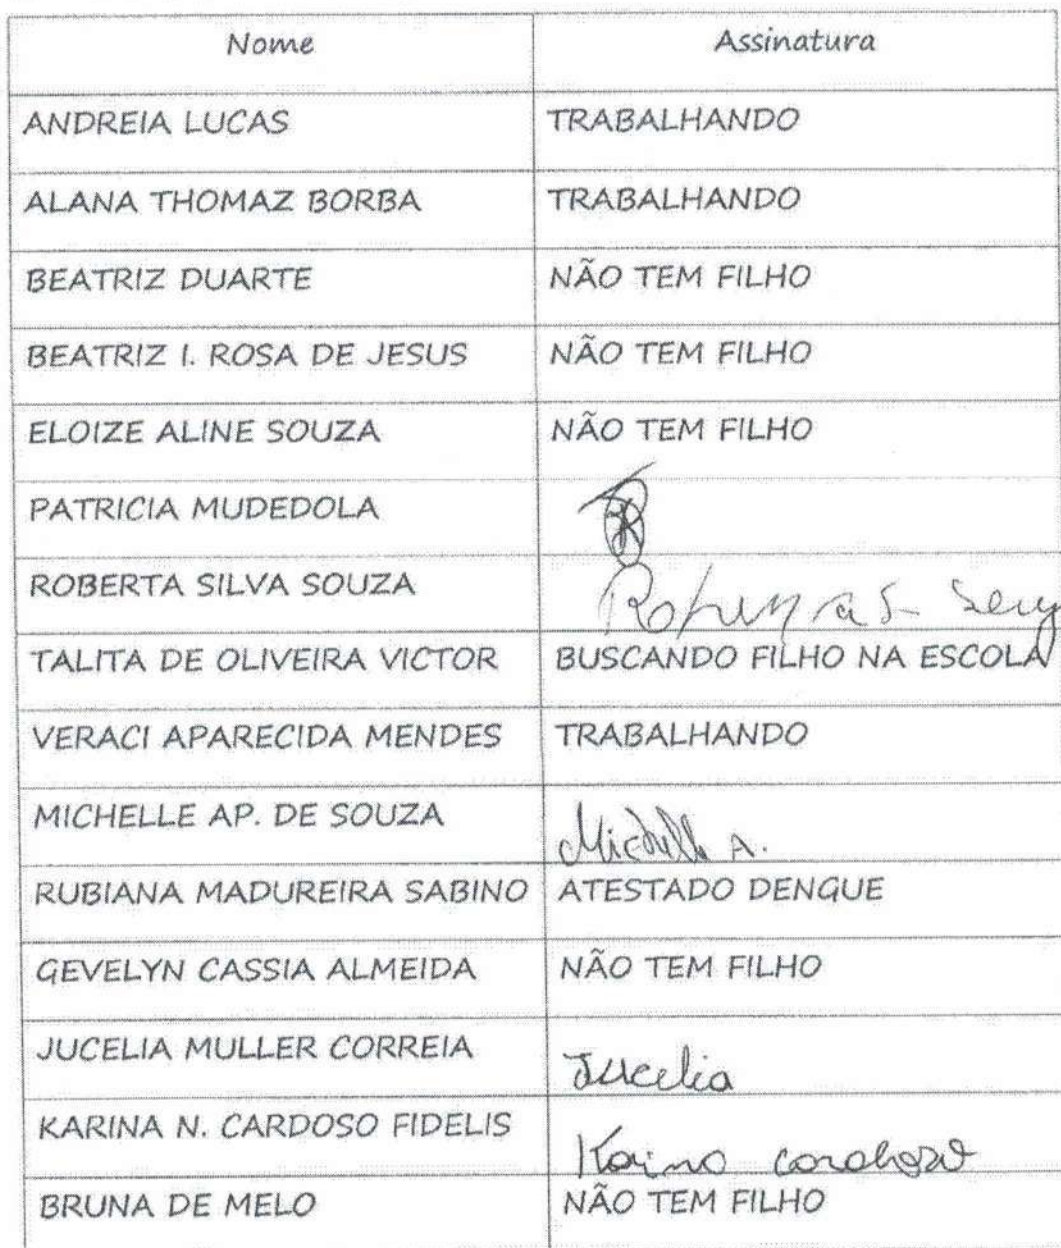 Nome Assinatura
ANDREIA LUCAS TRABALHANDO
ALANA THOMAZ BORBA TRABALHANDO
BEATRIZ DUARTE NÃO TEM FILHO
BEATRIZ I. ROSA DE JESUS NÃO TEM FILHO
ELOIZE ALINE SOUZA NÃO TEM FILHO
PATRICIA MUDEDOLA
ROBERTA SILVA SOUZA
TALITA DE OLIVEIRA VICTOR BUSCANDO FILHO NA ESCOLA
VERACI APARECIDA MENDES TRABALHANDO
MICHELLE AP. DE SOUZA Michelle A.
RUBIANA MADUREIRA SABINO ATESTADO DENGUE
GEVELYN CASSIA ALMEIDA NÃO TEM FILHO
JUCELIA MULLER CORREIA Jucelia
KARINA N. CARDOSO FIDELIS Karina
BRUNA DE MELO NÃO TEM FILHO